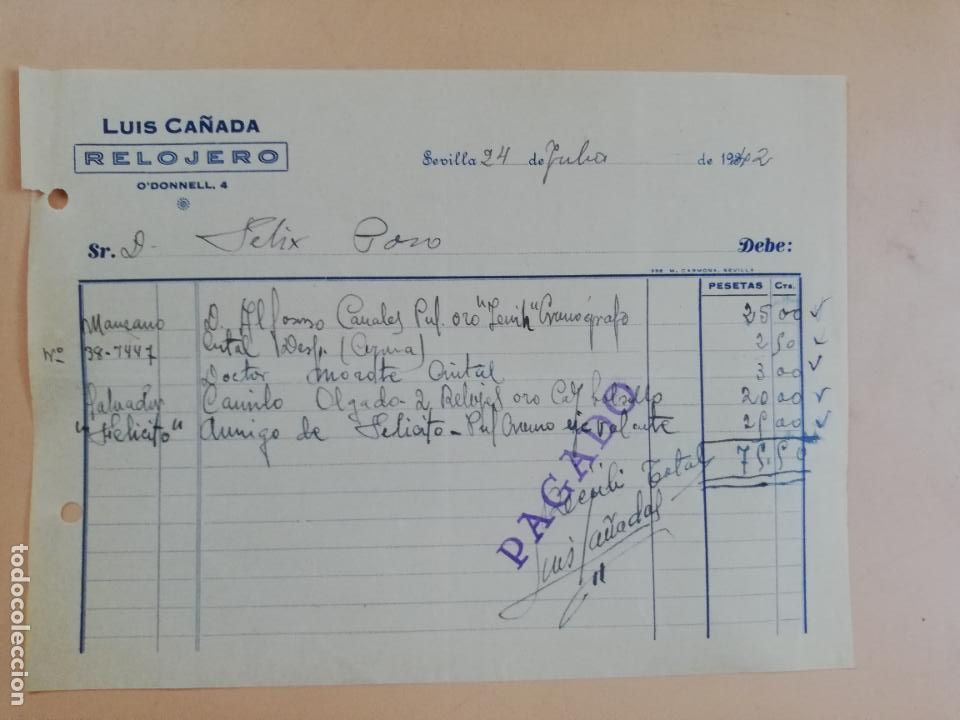 LUIS CAÑADA
RELOJERO
O'DONNELL, 4
Sevilla 24 de Julio de 1942
Sr. D. Felix Pozo Debe:
M. CARMONA, SEVILLA
PESETAS Cts.
Manzano D. Alfonso Canales Pul. oro "Zenit" Cronógrafo 25 00
Nº 38-7447 Cristal Desp. 2 50
Doctor Morote Cristal 3 00
Salvador Camilo Olgado 2 Relojes oro bolsillo 20 00
"Felicito" Amigo de Felicito - Pul. Cromo eje volante 25 00
Total 75.50
PAGADO
Recibí
Luis Cañadas
todocoleccion